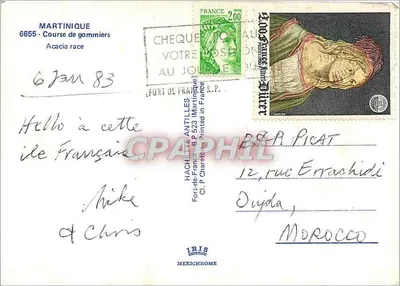 MARTINIQUE
6655 - Course de gommiers
Acacia race
6 Jan 83
Hello à cette
ile Français
Mike
& Chris
CHEQUE
VOTRE
AU JOU
FORT DE FRANCE R.P.
FRANCE
2,00
2,00 France
Dürer
HACHETTE ANTILLES
Fort-de-France - B.P 523 (Martinique)
Printed in France
CPAPHIL
PICAT
12, rue Errachidi
Oujda,
MOROCCO
IRIS
MEXICHROME